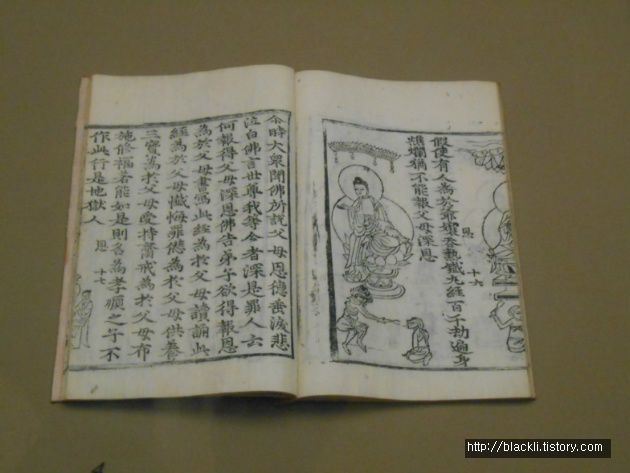 恩 十六
假使有人為於爺孃吞熱鐵丸經百千劫遍身
燋爛猶不能報父母深恩
尒時大衆聞佛所說父母恩德垂淚悲
泣白佛言世尊我等今者深是罪人云
何報得父母深恩佛告弟子欲得報恩
為於父母書寫此經為於父母讀誦此
經為於父母懺悔罪愆為於父母供養
三寶為於父母受持齋戒為於父母布
施修福若能如是則名為孝順之子不
作此行是地獄人
恩 十七
http://blackli.tistory.com